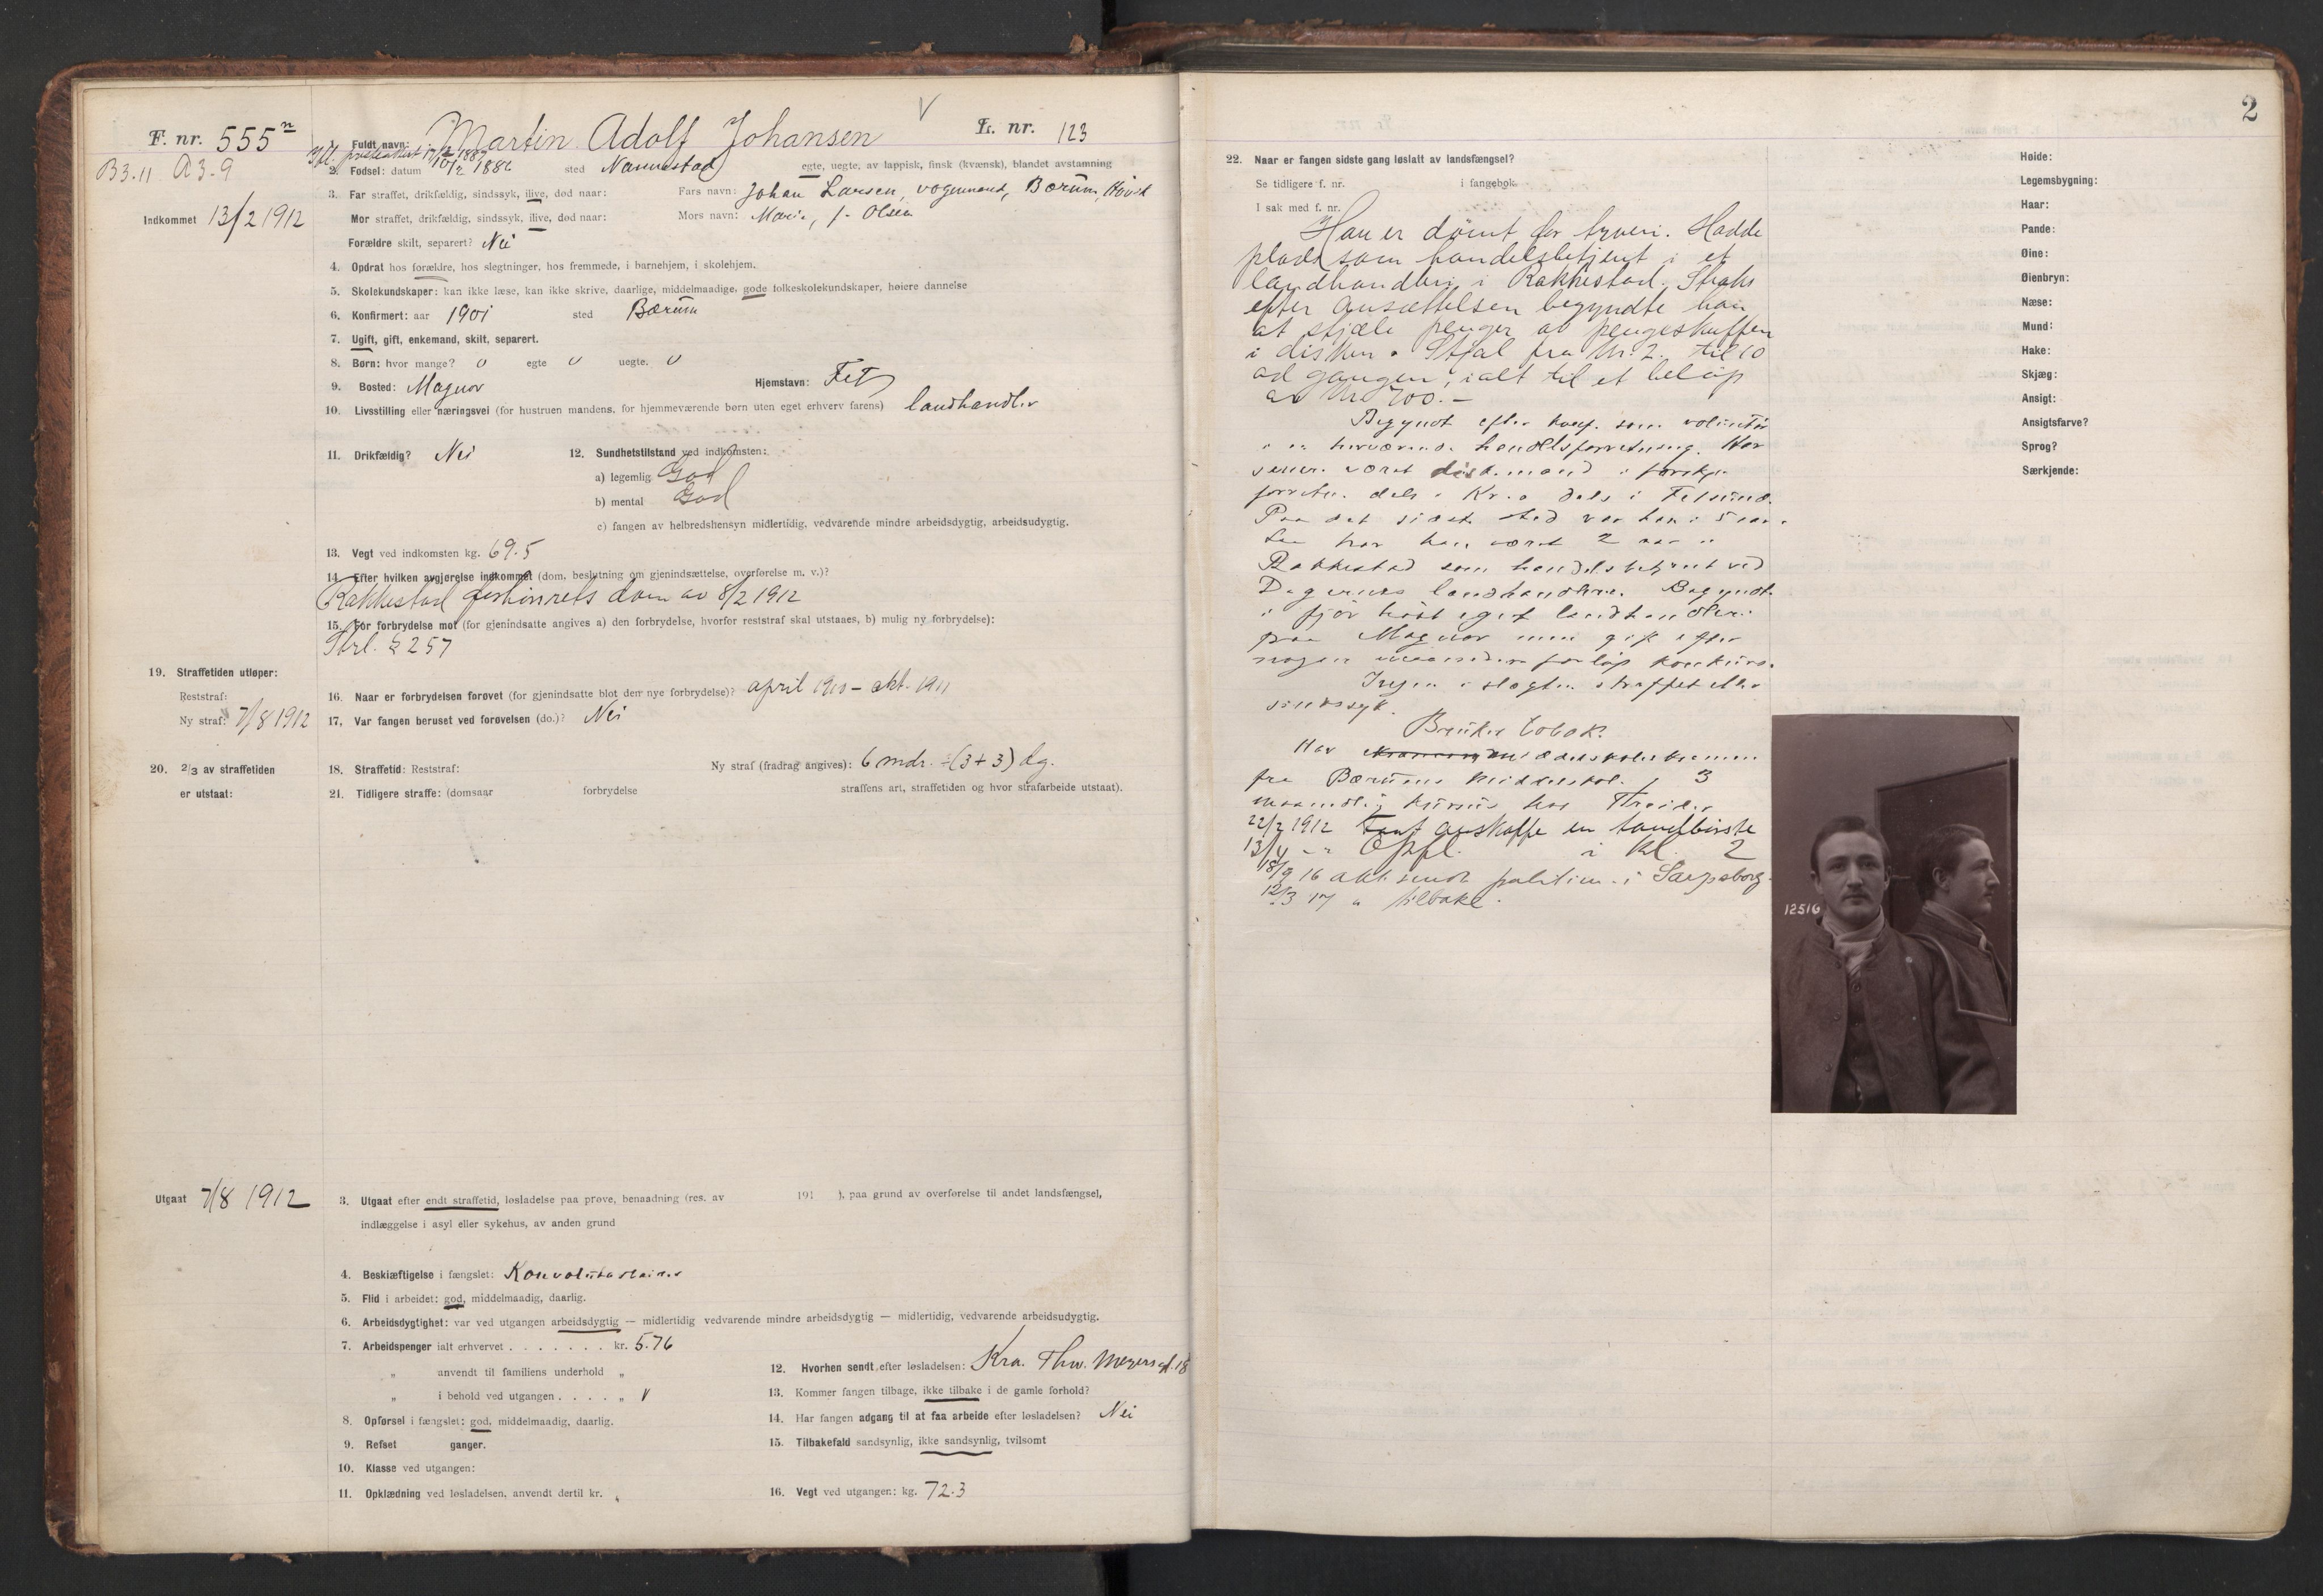 F. nr. 555 n
B3.11 A3.9
Fuldt navn: Martin Adolf Johansen
L. nr. 123
2. Fødsel: datum 10/2 1886 sted Nannestad egte, uegte, av lappisk, finsk (kvænsk), blandet avstamning
Indkommet 13/2 1912
3. Far straffet, drikfældig, sindssyk, ilive, død naar: Fars navn: Johan Larsen, vognmand, Bærum, Høvik
Mor straffet, drikfældig, sindssyk, ilive, død naar: Mors navn: Marie, f. Olsen
Forældre skilt, separert? Nei
4. Opdrat hos forældre, hos slegtninger, hos fremmede, i barnehjem, i skolehjem.
5. Skolekundskaper: kan ikke læse, kan ikke skrive, daarlige, middelmaadige, gode folkeskolekundskaper, høiere dannelse
6. Konfirmert: aar 1901 sted Bærum
7. Ugift, gift, enkemand, skilt, separert.
8. Børn: hvor mange? 0 egte 0 uegte. 0
9. Bosted: Magnor Hjemstavn: Fet
10. Livsstilling eller næringsvei (for hustruen mandens, for hjemmeværende børn uten eget erhverv farens) landhandler
11. Drikfældig? Nei 12. Sundhetstilstand ved indkomsten:
a) legemlig God
b) mental God
c) fangen av helbredshensyn midlertidig, vedvarende mindre arbeidsdygtig, arbeidsudygtig.
13. Vegt ved indkomsten kg. 69.5
14. Efter hvilken avgjørelse indkommet (dom, beslutning om gjenindsættelse, overførelse m. v.)?
Rakkestad forhørsrets dom av 8/2 1912
15. For forbrydelse mot (for gjenindsatte angives a) den forbrydelse, hvorfor reststraf skal utstaaes, b) mulig ny forbrydelse):
Strl. § 257
19. Straffetiden utløper:
Reststraf:
Ny straf: 7/8 1912
16. Naar er forbrydelsen forøvet (for gjenindsatte blot den nye forbrydelse)? april 1910 - okt. 1911
17. Var fangen beruset ved forøvelsen (do.)? Nei
20. 2/3 av straffetiden
er utstaat:
18. Straffetid: Reststraf: Ny straf (fradrag angives): 6 mdr. ÷ (3 + 3) dg.
21. Tidligere straffe: (domsaar forbrydelse straffens art, straffetiden og hvor strafarbeide utstaat).
Utgaat 7/8 1912
3. Utgaat efter endt straffetid, løsladelse paa prøve, benaadning (res. av 191 ), paa grund av overførelse til andet landsfængsel,
indlæggelse i asyl eller sykehus, av anden grund
4. Beskiæftigelse i fængslet:
5. Flid i arbeidet: god, middelmaadig, daarlig.
6. Arbeidsdygtighet: var ved utgangen arbeidsdygtig — midlertidig vedvarende mindre arbeidsdygtig — midlertidig, vedvarende arbeidsudygtig.
7. Arbeidspenger ialt erhvervet . . . . . . . kr. 5.76
„ anvendt til familiens underhold „
„ i behold ved utgangen . . . . „
8. Opførsel i fængslet: god, middelmaadig, daarlig.
9. Refset ganger.
10. Klasse ved utgangen:
11. Opklædning ved løsladelsen, anvendt dertil kr.
12. Hvorhen sendt efter løsladelsen: Kra. Thv. Meyersgt. 18
13. Kommer fangen tilbage, ikke tilbake i de gamle forhold?
14. Har fangen adgang til at faa arbeide efter løsladelsen? Nei
15. Tilbakefald sandsynlig, ikke sandsynlig, tvilsomt
16. Vegt ved utgangen: kg. 72.3
2
22. Naar er fangen sidste gang løslatt av landsfængsel?
Se tidligere f. nr. i fangebok.
I sak med f. nr.
Han er dømt for tyveri. Hadde
plads som handelsbetjent i et
landhandleri i Rakkestad. Straks
efter ansættelsen begyndte han
at stjæle penger av pengeskuffen
i disken. Stjal fra kr. 2. til 10
ad gangen, ialt til et beløp
av kr. 700.-
Begyndt efter konf. som volontør
handelsforretning. Har
senere været diskmand i forskj.
forretn. dels i Kr.a dels i Fetsund.
Paa det sidste sted var han i 5 aar.
har han været 2 aar i
Rakkestad som handelsbetjent ved
landhandleri. Begyndte
i fjor høst eget landhandleri
paa Magnor men gik efter
nogen maaneders forløp konkurs.
Ingen i slegten straffet eller
sindssyk.
Bruker tobak.
Har middelskoleeksamen
fra Bærums middelskole, 3
maanedlig kursus hos Treider
22/2 1912 anskaffe en tandbørste
13/4 - " Opfl. i kl. 2
18/9 16 akt. sendt politim. i Sarpsborg.
12/3 17 " tilbake.
Høide:
Legemsbygning:
Haar:
Pande:
Øine:
Øienbryn:
Næse:
Mund:
Hake:
Skjæg:
Ansigt:
Ansigtsfarve?
Sprog?
Særkjende:
12516